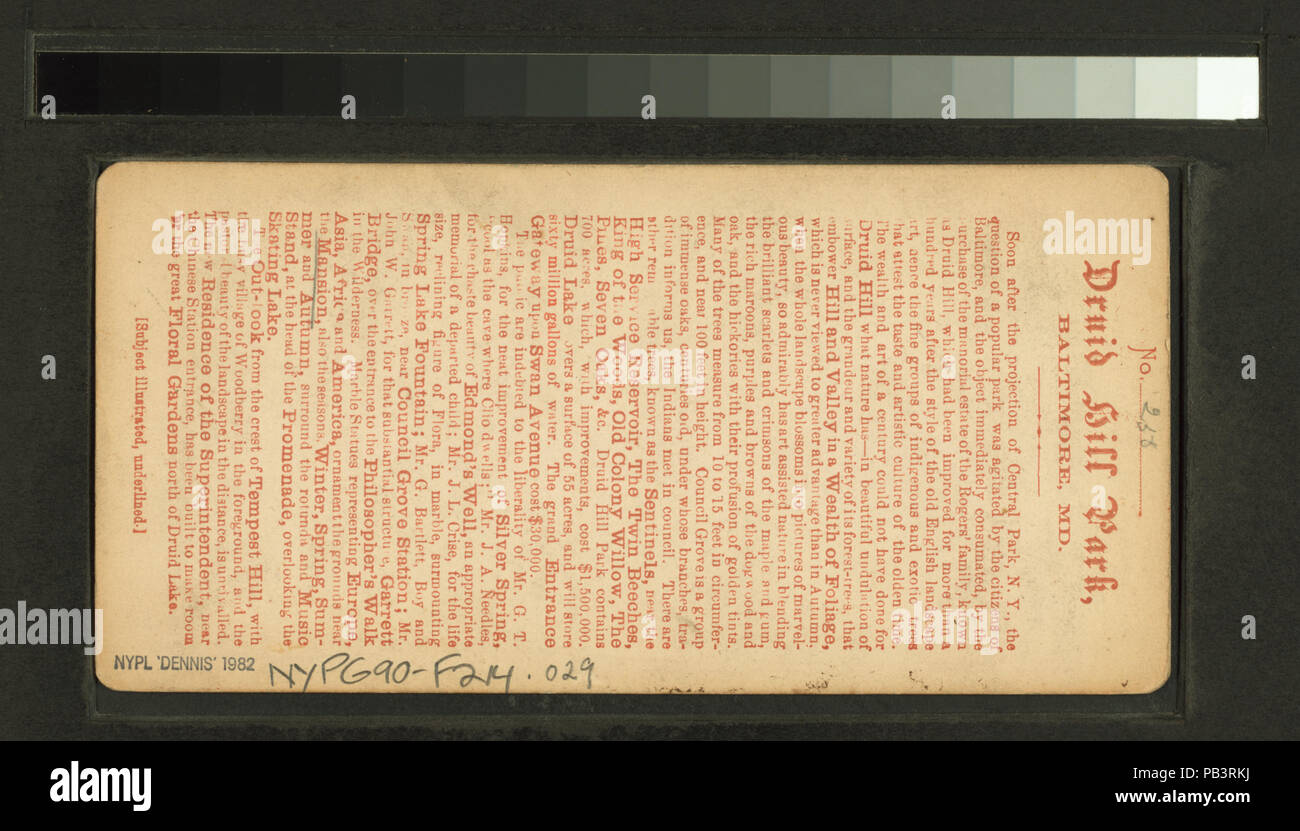 No. 258
Druid Hill Park,
BALTIMORE, MD.
Soon after the projection of Central Park, N. Y., the
question of a popular park was agitated by the citizens of
Baltimore, and the object immediately consumated, by the
purchase of the manorial estate of the Rogers' family, known
as Druid Hill, which had been improved for more than a
hundred years after the style of the old English landscape
art, hence the fine groups of indigenous and exotic trees
that attest the taste and artistic culture of the olden time.
The wealth and art of a century could not have done for
Druid Hill what nature has—in beautiful undulation of
surface, and the grandeur and variety of its forest-trees, that
embower Hill and Valley in a Wealth of Foliage,
which is never viewed to greater advantage than in Autumn,
when the whole landscape blossoms into pictures of marvel-
ous beauty, so admirably has art assisted nature in blending
the brilliant scarlets and crimsons of the maple and gum,
the rich maroons, purples and browns of the dogwood and
oak, and the hickories with their profusion of golden tints.
Many of the trees measure from 10 to 15 feet in circumfer-
ence, and near 100 feet in height. Council Grove is a group
of immense oaks, centuries old, under whose branches, tra-
dition informs us, the Indians met in council. There are
other remarkable trees known as the Sentinels, near the
High Service Reservoir, The Twin Beeches,
King of the Woods, Old Colony Willow, The
Pines, Seven Oaks, &c. Druid Hill Park contains
700 acres, which, with improvements, cost $1,500,000.
Druid Lake covers a surface of 55 acres, and will store
sixty million gallons of water. The grand Entrance
Gateway upon Swan Avenue cost $30,000.
The public are indebted to the liberality of Mr. G. T.
Hopkins, for the neat improvement of Silver Spring,
"cool as the cave where Clio dwells;" Mr. J. A. Needles,
for the chaste beauty of Edmond's Well, an appropriate
memorial of a departed child; Mr. J. L. Crise, for the life
size, reclining figure of Flora, in marble, surmounting
Spring Lake Fountain; Mr. G. Bartlett, Boy and
Swan, in bronze, near Council Grove Station; Mr.
John W. Garrett, for that substantial structure, Garrett
Bridge, over the entrance to the Philosopher's Walk
in the Wilderness. Marble Statues representing Europe,
Asia, Africa and America, ornament the grounds near
the Mansion, also the seasons, Winter, Spring, Sum-
mer and Autumn, surround the rotunda and Music
Stand, at the head of the Promenade, overlooking the
Skating Lake.
The Out-look from the crest of Tempest Hill, with
the village of Woodbery in the foreground, and the
beauty of the landscape in the distance, is unrivalled.
The New Residence of the Superintendent, near
the Chinese Station entrance, has been built to make room
for the great Floral Gardens north of Druid Lake.
[Subject illustrated, underlined.]
NYPL 'DENNIS' 1982
NYPG90-F214.029
a
alamy
Image ID: PB3RKJ
www.alamy.com